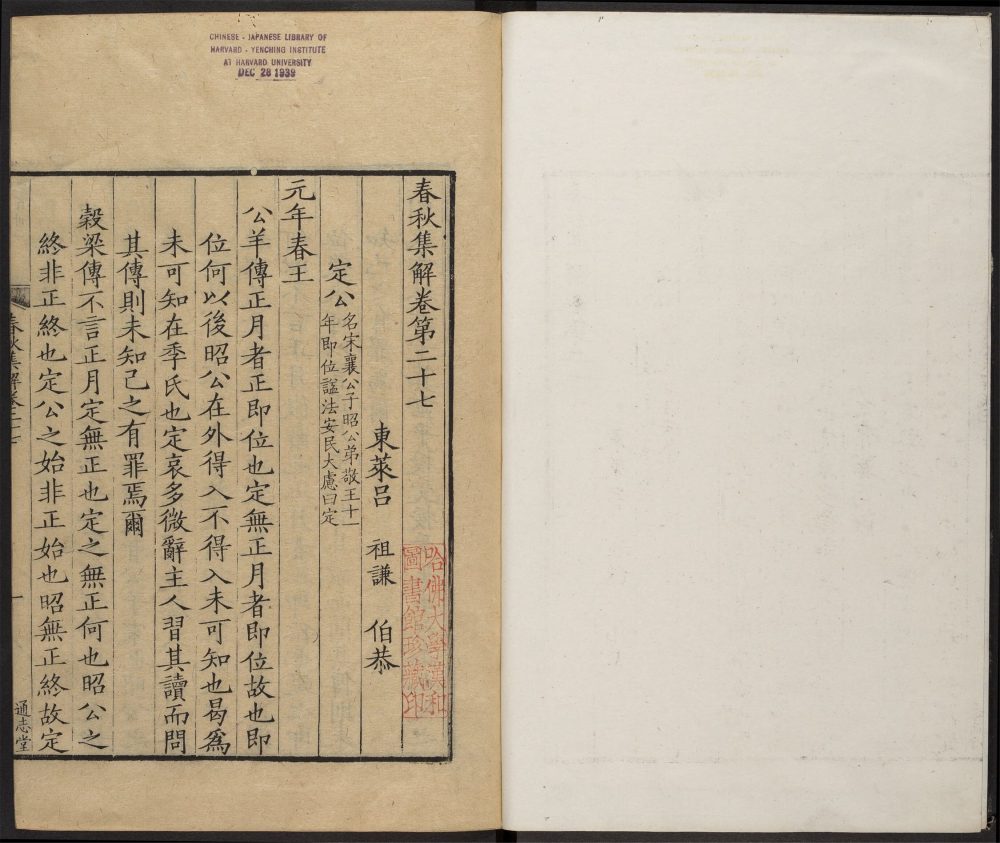 CHINESE - JAPANESE LIBRARY OF
HARVARD - YENCHING INSTITUTE
AT HARVARD UNIVERSITY
DEC 28 1939
春秋集解卷第二十七
東萊呂 祖謙 伯恭
哈佛大學漢和
圖書館珍藏印
定公名宋襄公子昭公弟敬王十一
年即位諡法安民大慮曰定
元年春王
公羊傳正月者正即位也定無正月者即位故也即
位何以後昭公在外得入不得入未可知也曷爲
未可知在季氏也定哀多微辭主人習其讀而問
其傳則未知己之有罪焉爾
穀梁傳不言正月定無正也定之無正何也昭公之
終非正終也定公之始非正始也昭無正終故定
春秋集解卷二十七
一
通志堂